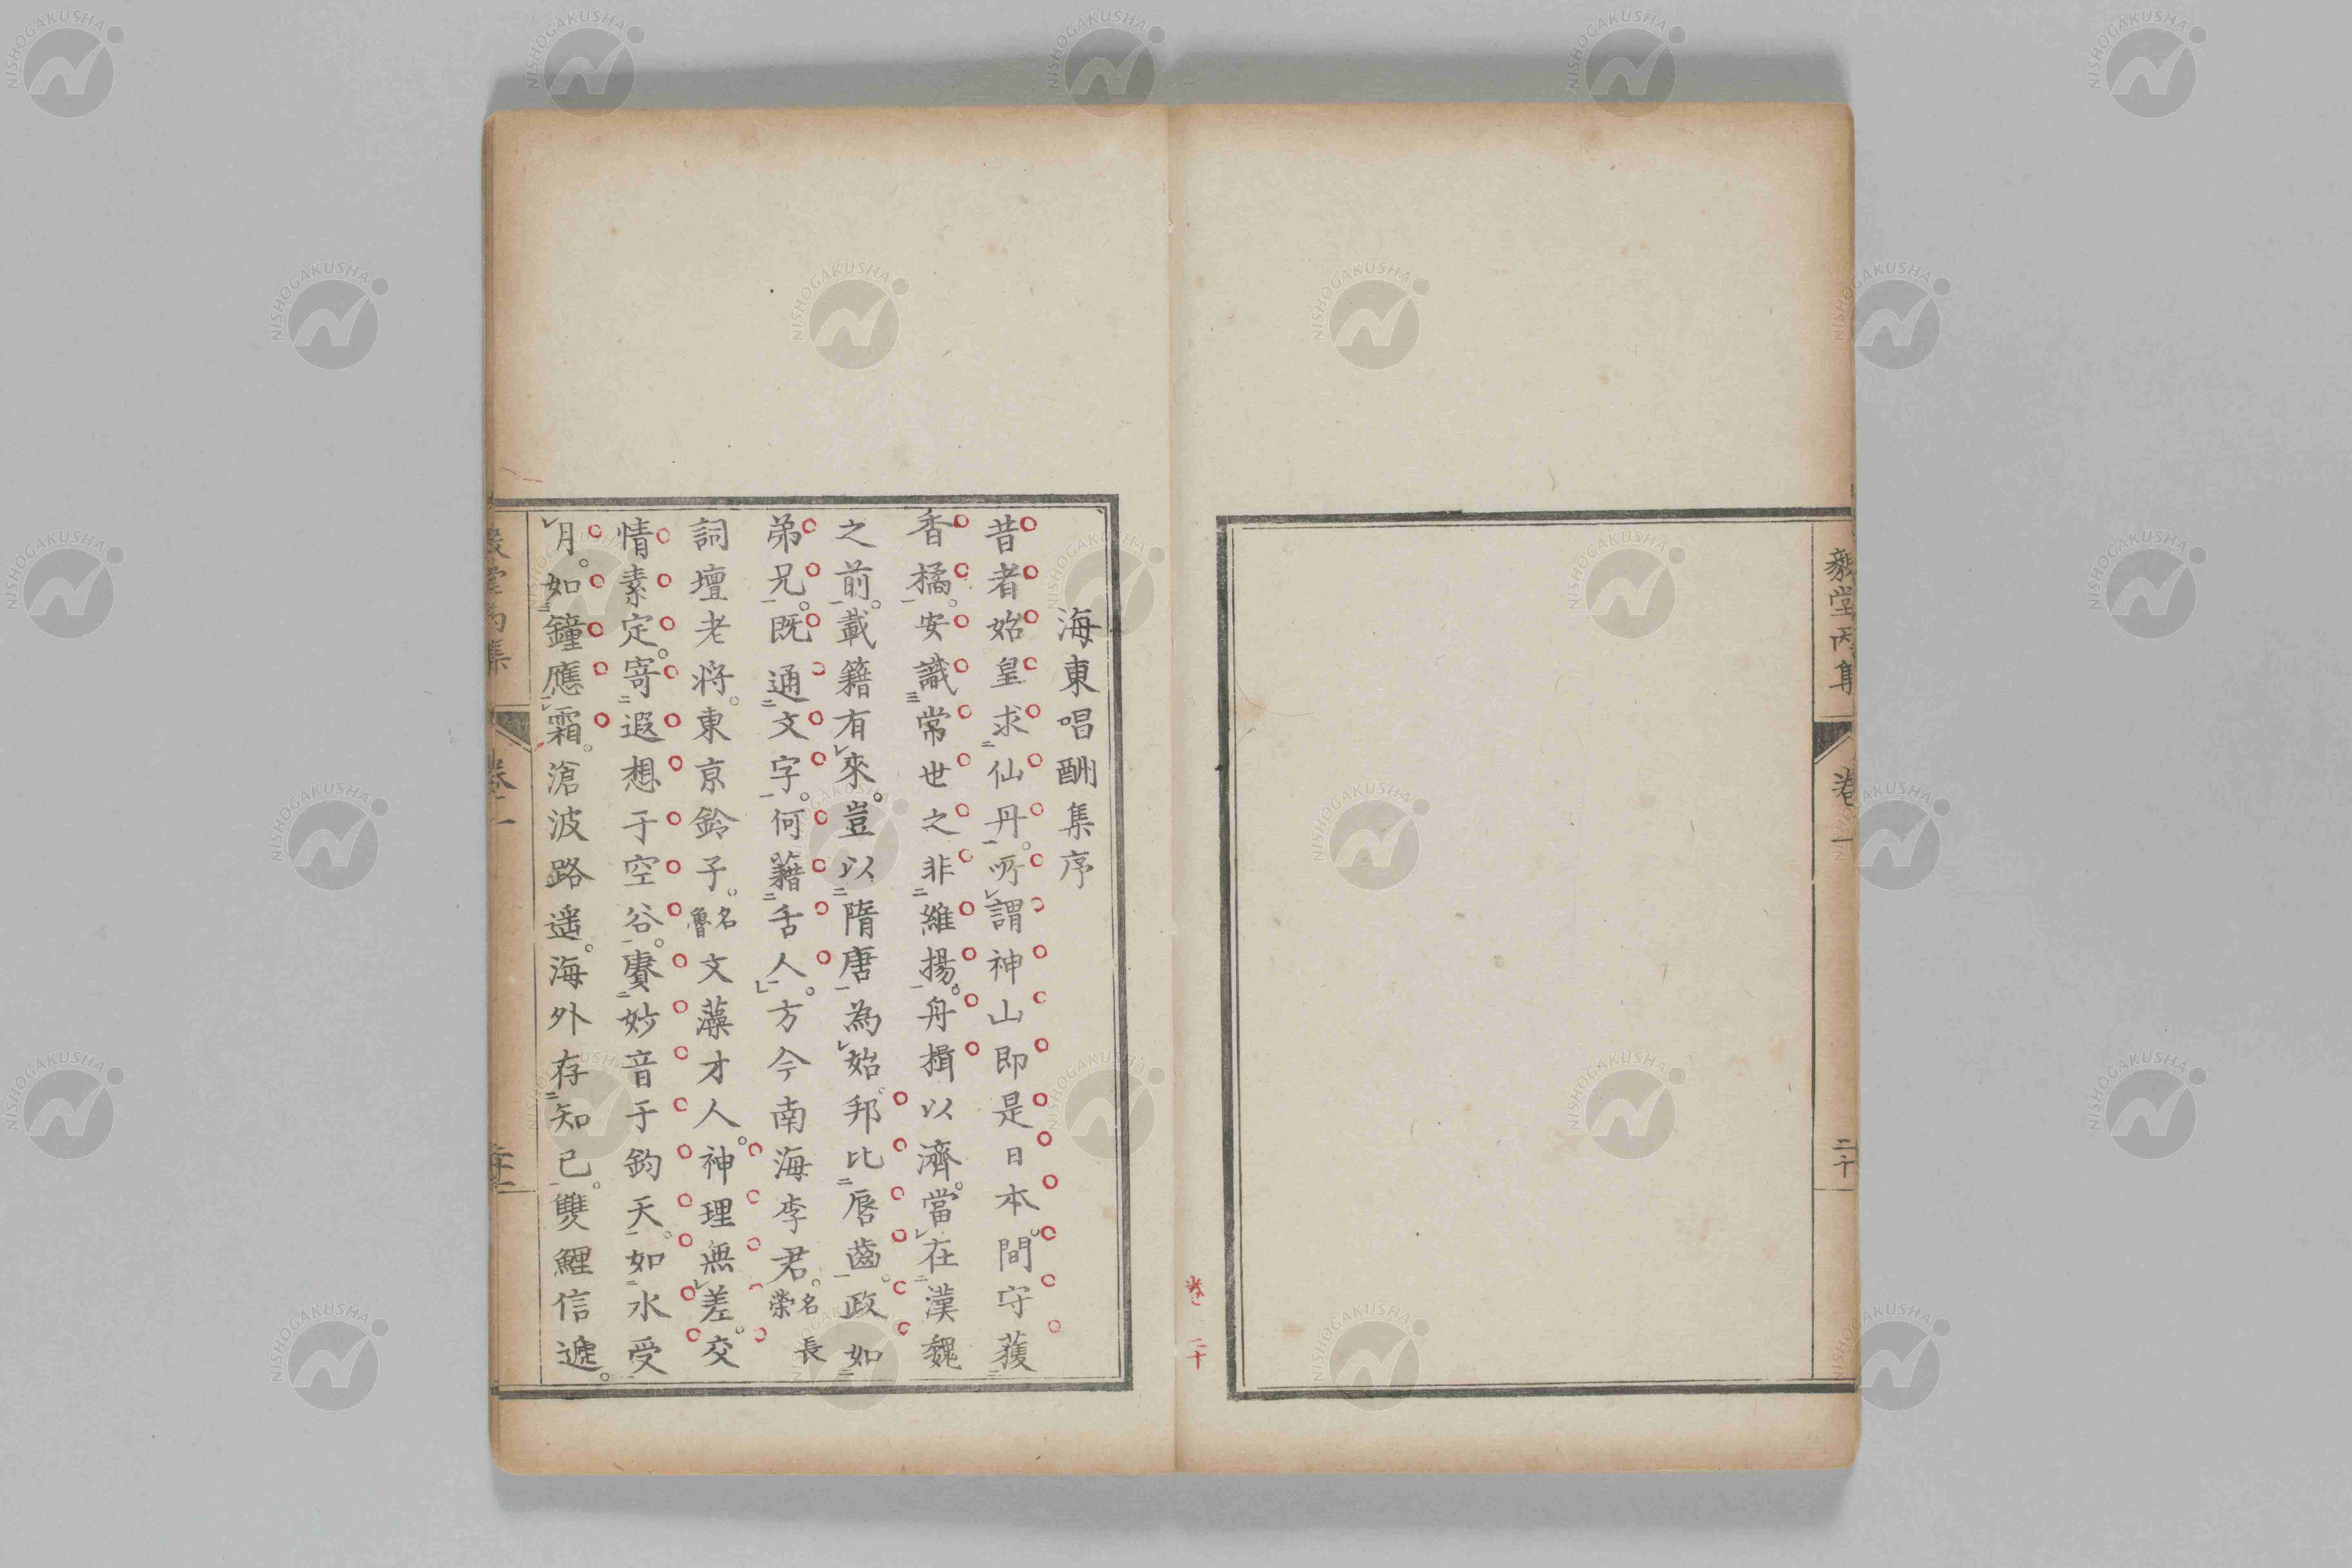 毅堂丙集
卷一
二十
卷一 二十
海東唱酬集序
昔者始皇求仙丹。所謂神山即是日本。間守䕶
香橘。安識常世之非維揚。舟楫以濟。當在漢魏
之前。載籍有來。豈以隋唐為始。邦比唇齒。政如
弟兄。既通文字。何藉舌人。方今南海李君。名榮長
詞壇老將。東京鈴子。名魯文藻才人。神理無差。交
情素定。寄遐想于空谷。賡妙音于鈞天。如水受
月。如鐘應霜。滄波路遥。海外存知己。雙鯉信遞。
堂丙集
NISHOGAKUSHA